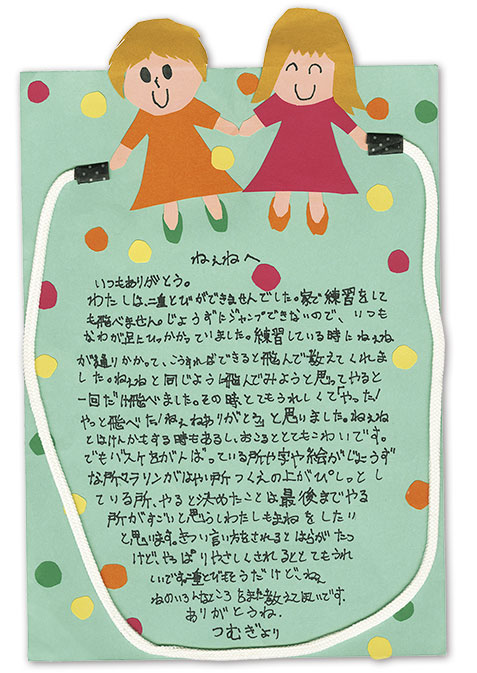 ねぇねへ
いつもありがとう。
わたしは、二重とびができませんでした。家で練習をして
も飛べません。じょうずにジャンプできないので、いつも
なわが足にひっかかっていました。練習している時にねぇね
が通りかかって、こうすればできると飛んで教えてくれま
した。ねぇねと同じように飛んでみようと思ってやると
一回だけ飛べました。その時とてもうれしくて「やった！
やっと飛べた！ねぇねありがとう」と思いました。ねぇね
とはけんかをする時もあるし、おこるととてもこわいです。
でもバスケをがんばっている所や字や絵がじょうず
な所、マラソンがはやい所、つくえの上がぴしっとし
ている所、やると決めたことは最後までやる
所がすごいと思うし、わたしもまねをしたい
と思います。きつい言い方をされるとはらがたつ
けど、やっぱりやさしくされるととてもうれ
しいです。二重とびもそうだけど、ねぇ
ねのいろんなところをまた教えてほしいです。
ありがとうね。
つむぎより